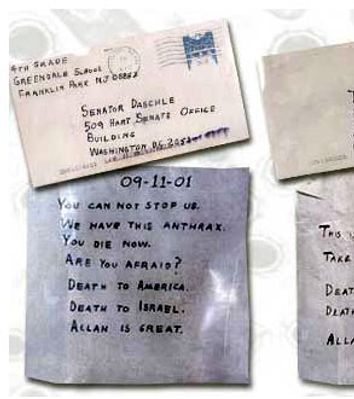 4TH GRADE
GREENDALE SCHOOL
FRANKLIN PARK NJ 08852
SENATOR DASCHLE
509 HART SENATE OFFICE
BUILDING
WASHINGTON D.C. 20510
09-11-01
YOU CAN NOT STOP US.
WE HAVE THIS ANTHRAX.
YOU DIE NOW.
ARE YOU AFRAID?
DEATH TO AMERICA.
DEATH TO ISRAEL.
ALLAH IS GREAT.
THIS
TAKE
DEAT
DEAT
ALLA